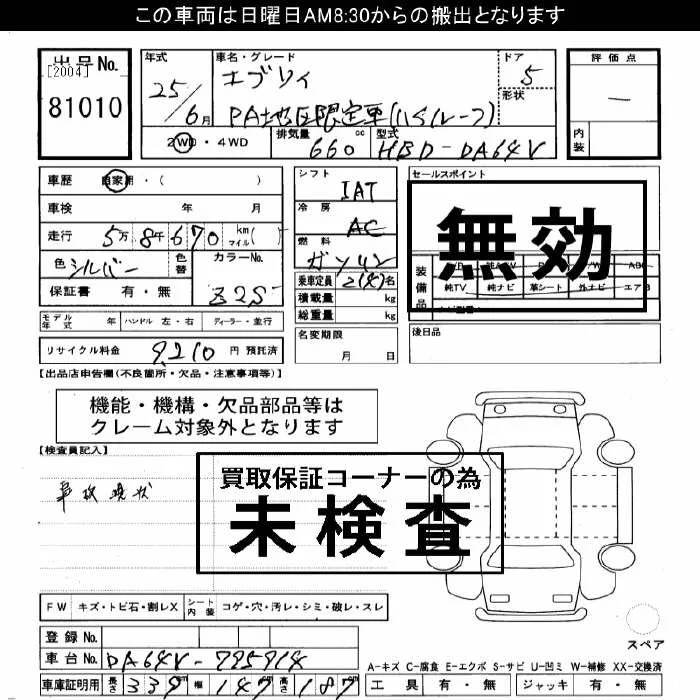 この車両は日曜日AM8:30からの搬出となります
出品No. 年式 車名・グレード ドア 評価点
[2004] エブリィ 5
81010 25/6月 PA地区限定車(ハイルーフ) 形状 —
2WD・4WD 排気量 660 cc 型式 HBD-DA64V 内装
車歴 自家用・( ) シフト IAT セールスポイント
車検 年 月 冷房 AC
無効
走行 5万8千670 km マイル( ) 燃料 ガソリン
色 シルバー 色替 カラーNo. Z2S 乗車定員 2(4)名 装備品
保証書 有・無 積載量 kg 純TV 純ナビ 革シート 外ナビ エアB
総重量 kg
モデル年式 年 ハンドル 左・右 ディーラー・並行 名変期限 月 日 後日品
リサイクル料金 9,210 円 預託済
【出品店申告欄(不良箇所・欠品・注意事項等)】
機能・機構・欠品部品等は
クレーム対象外となります
【検査員記入】
買取保証コーナーの為
未検査
事故現状
FW キズ・トビ石・割レX シート内装 コゲ・穴・汚レ・シミ・破レ・スレ
スペア
登録No.
車台No. DA64V-795914
A-キズ C-腐食 E-エクボ S-サビ U-凹ミ W-補修 XX-交換済
車庫証明用 長さ 339 cm 幅 147 cm 高さ 187 cm 工具 有・無 ジャッキ 有・無